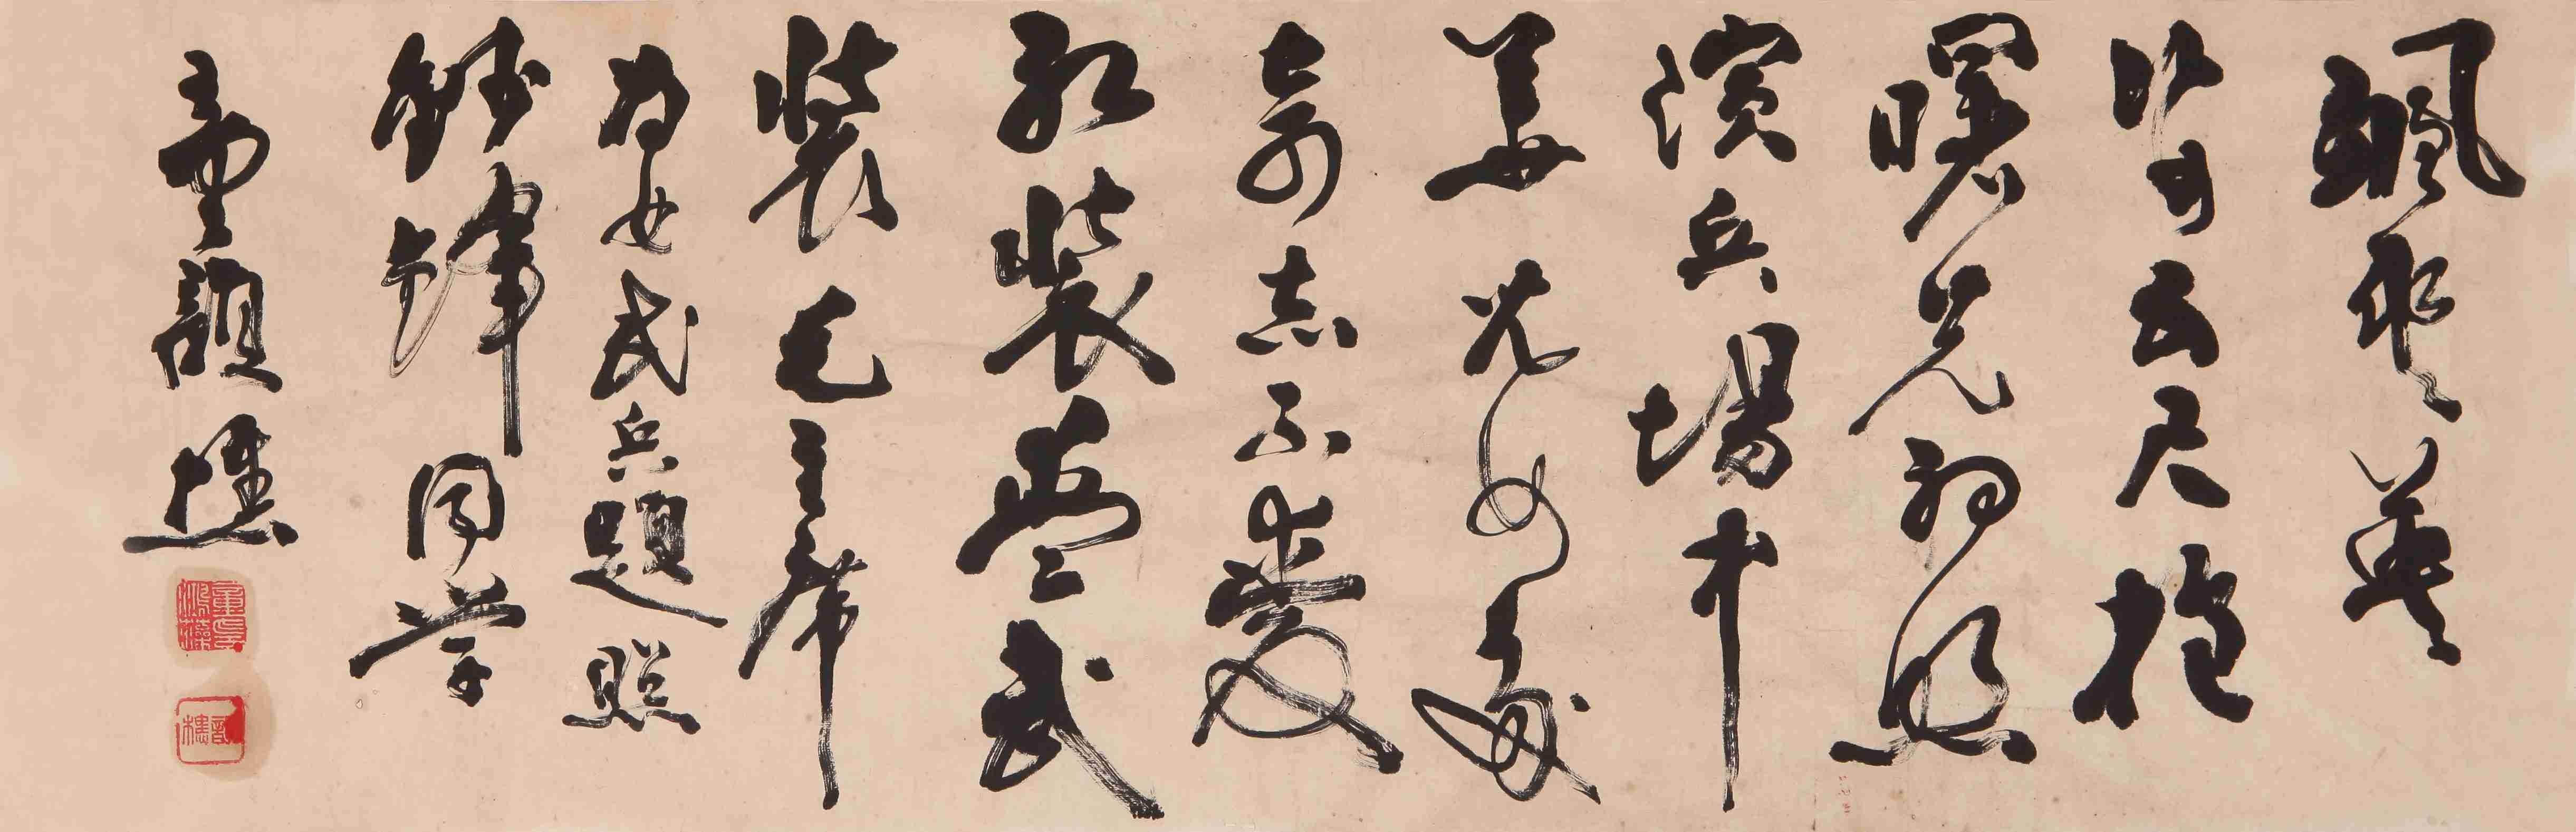 颯爽英
姿五尺槍
曙光初照
演兵場中
華兒女多
奇志不愛
紅裝愛武
裝毛主席
为女民兵題照
鋒同学
童韻樵
韻樵